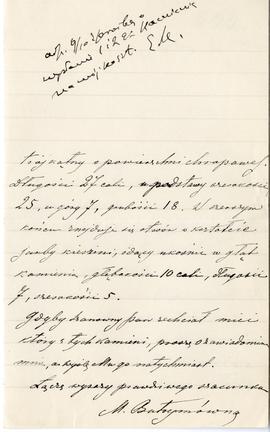 trójkątny o powierzchni chropawej.
Długości 27 cali, u podstawy szerokości
25, u góry 7, grubości 18. W szerszym
końcu znajduje się otwór w kształcie
jakby kieszeni, idący ukośnie w głąb
kamienia, głębokości 10 cali, długości
7, szerokości 5.
Gdyby Szanowny pan zechciał mieć
który z tych kamieni, proszę o zawiadomie
nie, a wyślę Mu go natychmiast.
Łączę wyrazy prawdziwego szacunku
M. Butrymówna